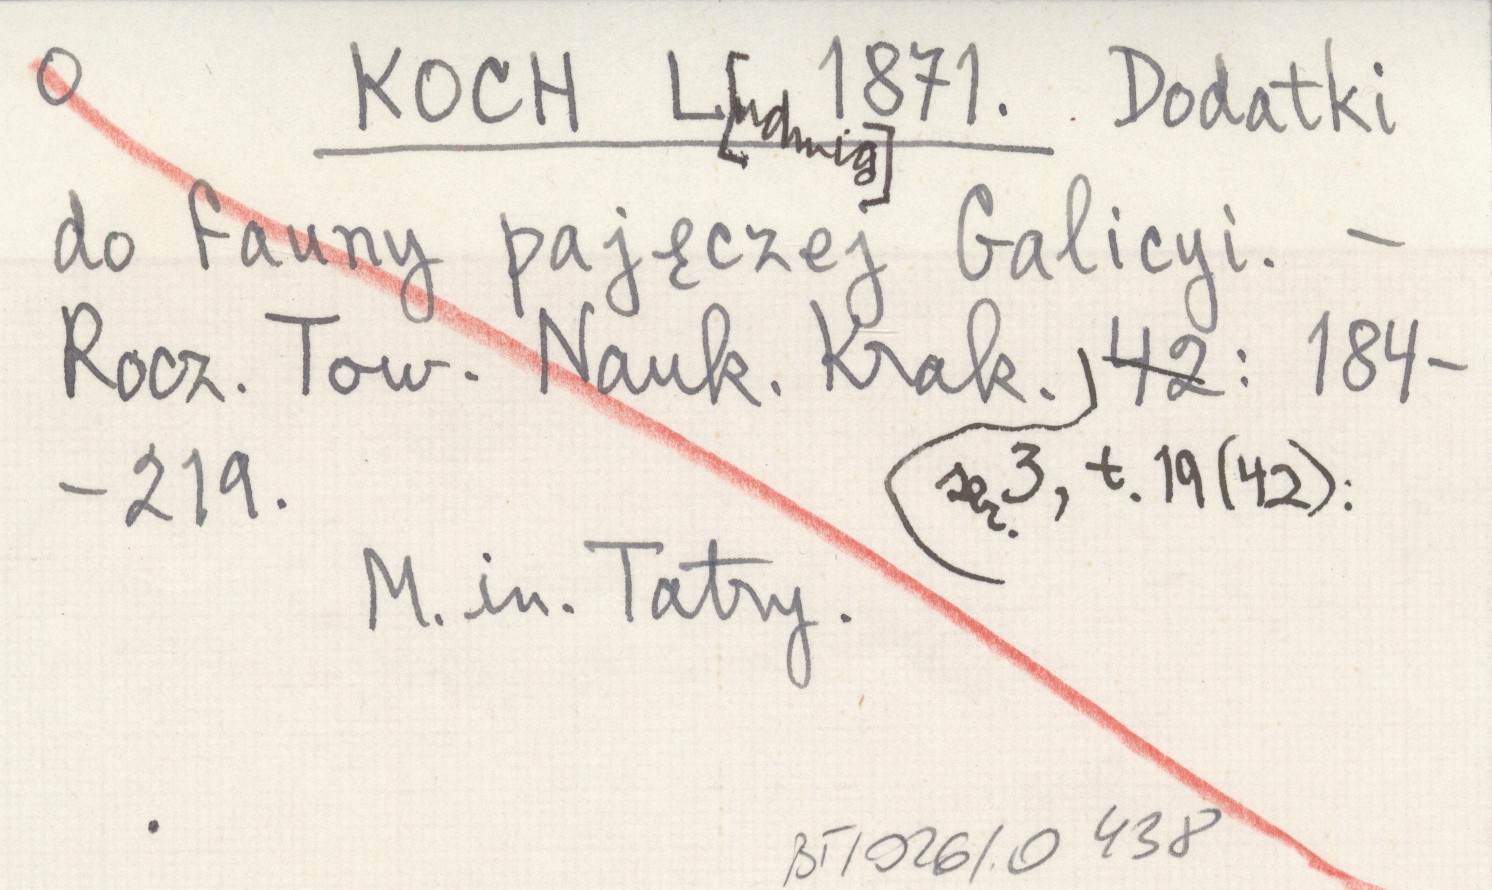 O KOCH L[udwig] 1871. Dodatki
do fauny pajęczej Galicyi. -
Rocz. Tow. Nauk. Krak., 42: 184-
ser. 3, t. 19 (42):
-219.
M. in. Tatry.
438